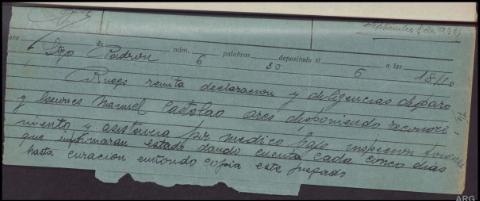 Sgo Padron
núm. 6 palabras 30 depositado el 5 a las 18'10
Ruego remita declaracion y diligencias disparo
y lesiones Manuel Castelao Ares disponiendo reconoci
miento y asistencia por medico bajo inspeccion forense
que informaran estado dando cuenta cada cinco dias
hasta curacion enviando copia este juzgado
ARG